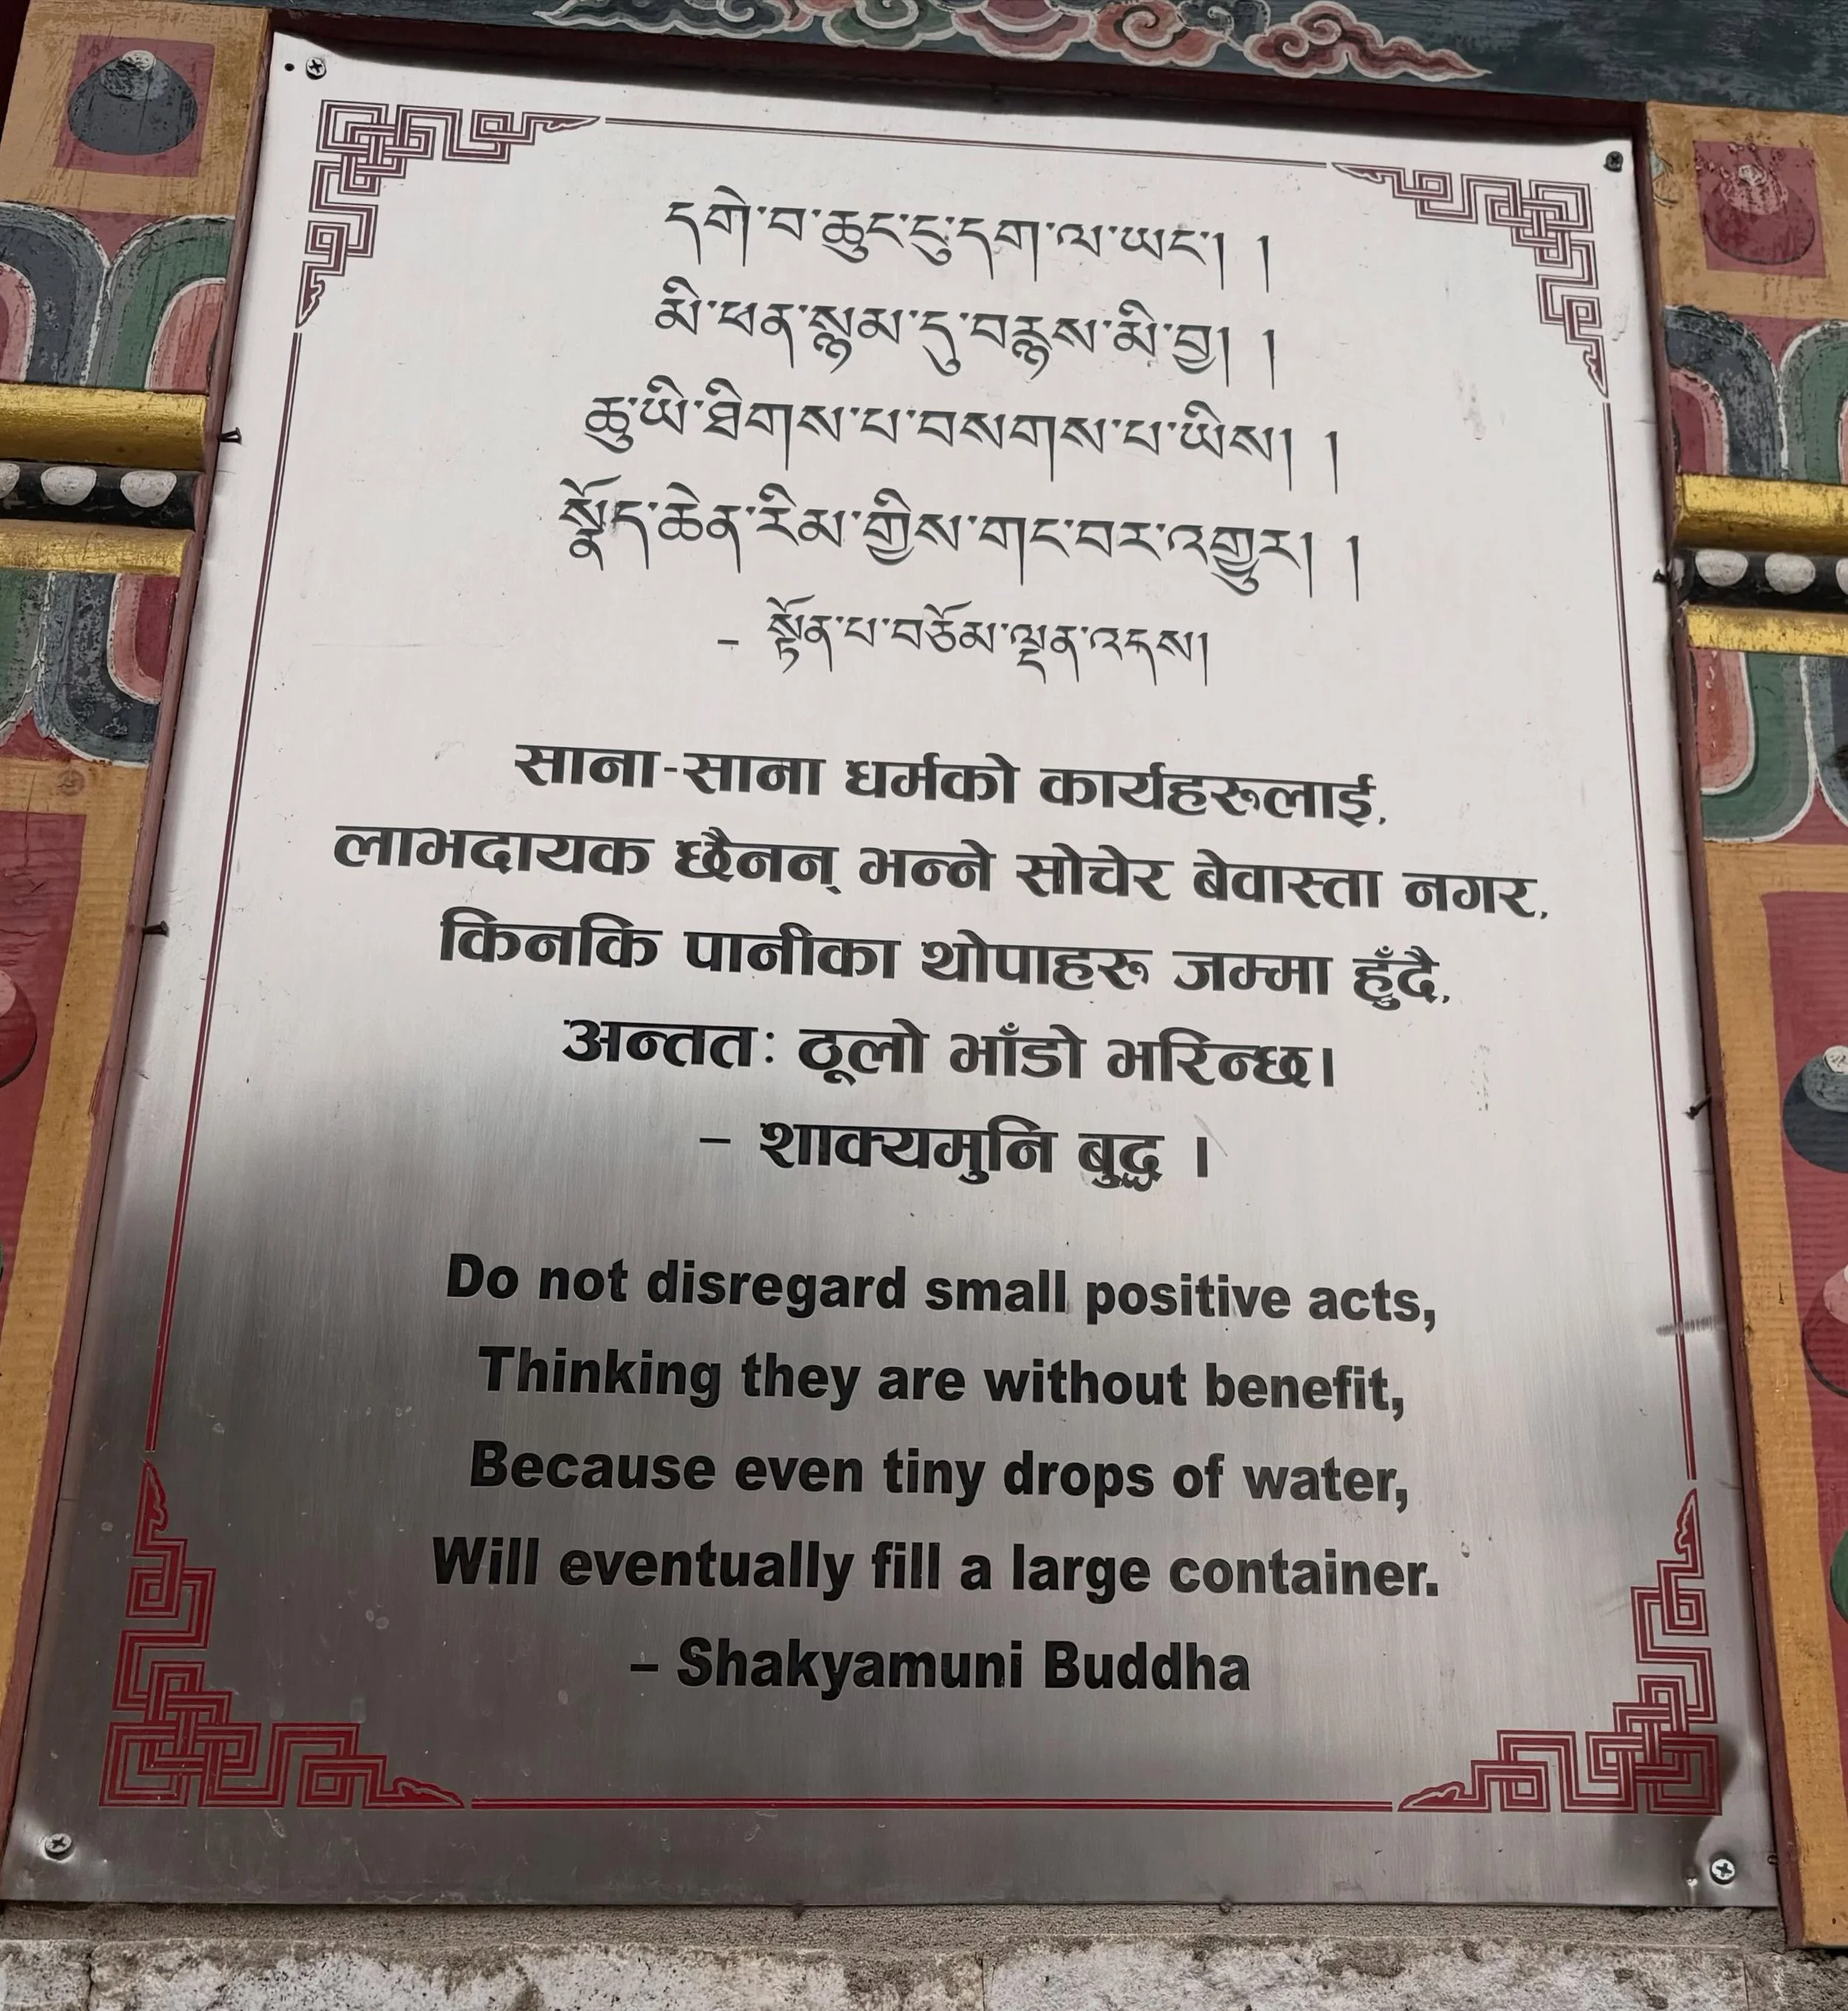 དགེ་བ་ཆུང་ངུ་དག་ལ་ཡང་། །
མི་ཕན་སྙམ་དུ་བརྙས་མི་བྱ། །
ཆུ་ཡི་ཐིགས་པ་བསགས་པ་ཡིས། །
སྣོད་ཆེན་རིམ་གྱིས་གང་བར་འགྱུར། །
– སྟོན་པ་བཅོམ་ལྡན་འདས།
साना-साना धर्मको कार्यहरुलाई,
लाभदायक छैनन् भन्ने सोचेर बेवास्ता नगर,
किनकि पानीका थोपाहरु जम्मा हुँदै,
अन्ततः ठूलो भाँडो भरिन्छ।
– शाक्यमुनि बुद्ध ।
Do not disregard small positive acts,
Thinking they are without benefit,
Because even tiny drops of water,
Will eventually fill a large container.
– Shakyamuni Buddha